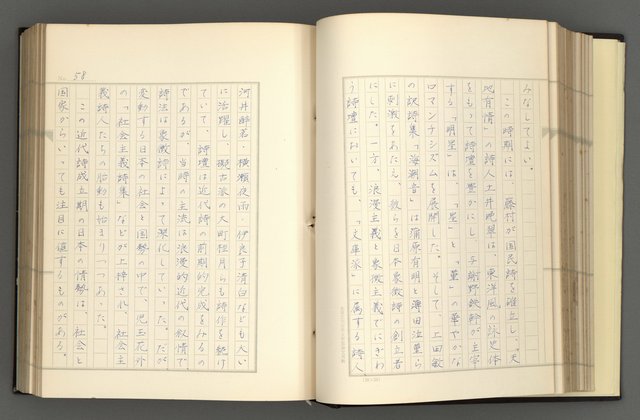 みなしてよい。
この時期には、藤村が国民詩を確立し、「天
地有情」の詩人土井晩翠は、東洋風の詠史体
をもって詩壇を豊かにし、与謝野鉄幹が主宰
する「明星」は、「星」と「菫」の華やかな
ロマンチシズムを展開した。そして、上田敏
の訳詩集「海潮音」は蒲原有明と薄田泣菫ら
に刺激をあたえ、彼らを日本象徴詩の創立者
にした。一方、浪漫主義と象徴主義でにぎわ
う詩壇においても、「文庫派」に属する詩人
No. 58
河井酔茗・横瀬夜雨・伊良子清白なども大い
に活躍し、擬古派の大町桂月らも詩作を続け
ていて、詩壇は近代詩の前期的完成をみるの
であるが、当時の主流は浪漫的近代の叙情で
詩法は象徴詩によって深化していった。だが
変動する日本の社会と国勢の中で、児玉花外
の「社会主義詩集」などが上梓され、社会主
義詩人たちの胎動も始まりつつあった。
この近代詩成立期の日本の情勢は、社会と
国家からいっても注目に値するものがある。